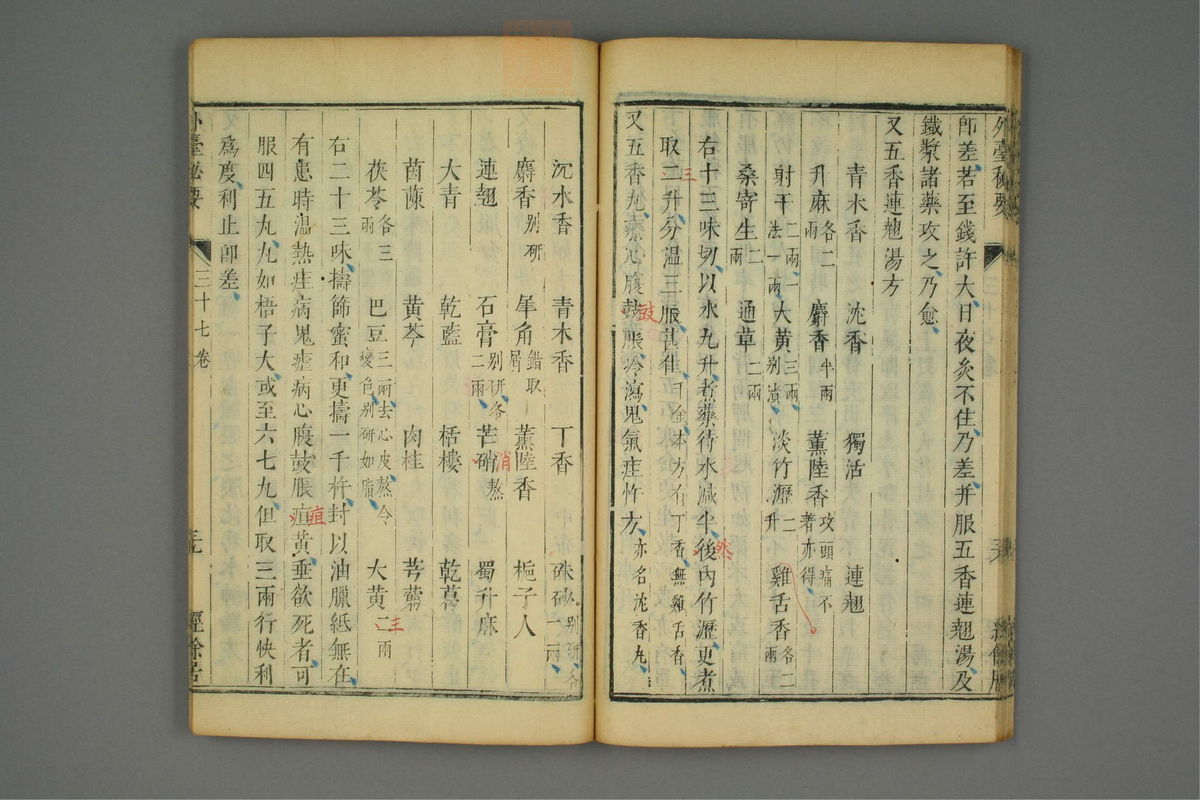 外臺秘要
卽差若至錢許大日夜灸不住乃差并服五香連翹湯及
鐵漿諸藥攻之乃愈
又五香連翹湯方
青木香 沈香 獨活 連翹
升麻各二兩 麝香半兩 薰陸香攻頭痛不著亦得
射干二兩一法一兩 大黃三兩別漬 淡竹瀝二升 雞舌香各二兩
桑寄生二兩 通草二兩
右十三味切以水九升煮藥待水減半後內竹瀝更煮
取二升分溫三服甚佳 本方有丁香無雞舌香
又五香丸療心腹鼓脹冷瀉鬼氣疰忤方亦名沈香丸
沉水香 青木香 丁香 硃砂別研各一兩
麝香別研 犀角錯取屑 薰陸香 梔子人
連翹 石膏別研各二兩 芒硝熬 蜀升麻
大青 乾藍 栝樓 乾葛
茵蔯 黃芩 肉桂 芎藭
茯苓各三兩 巴豆三兩去心皮熬令變色別研如脂 大黃二兩
右二十三味擣篩蜜和更擣一千杵封以油臘紙無在
有患時溫熱疰病鬼瘧病心腹鼓脹疸黃垂欲死者可
服四五丸丸如梧子大或至六七丸但取三兩行快利
爲度利止卽差
外臺秘要
三十七卷
經餘居
三
鼓
然
消
疽
三